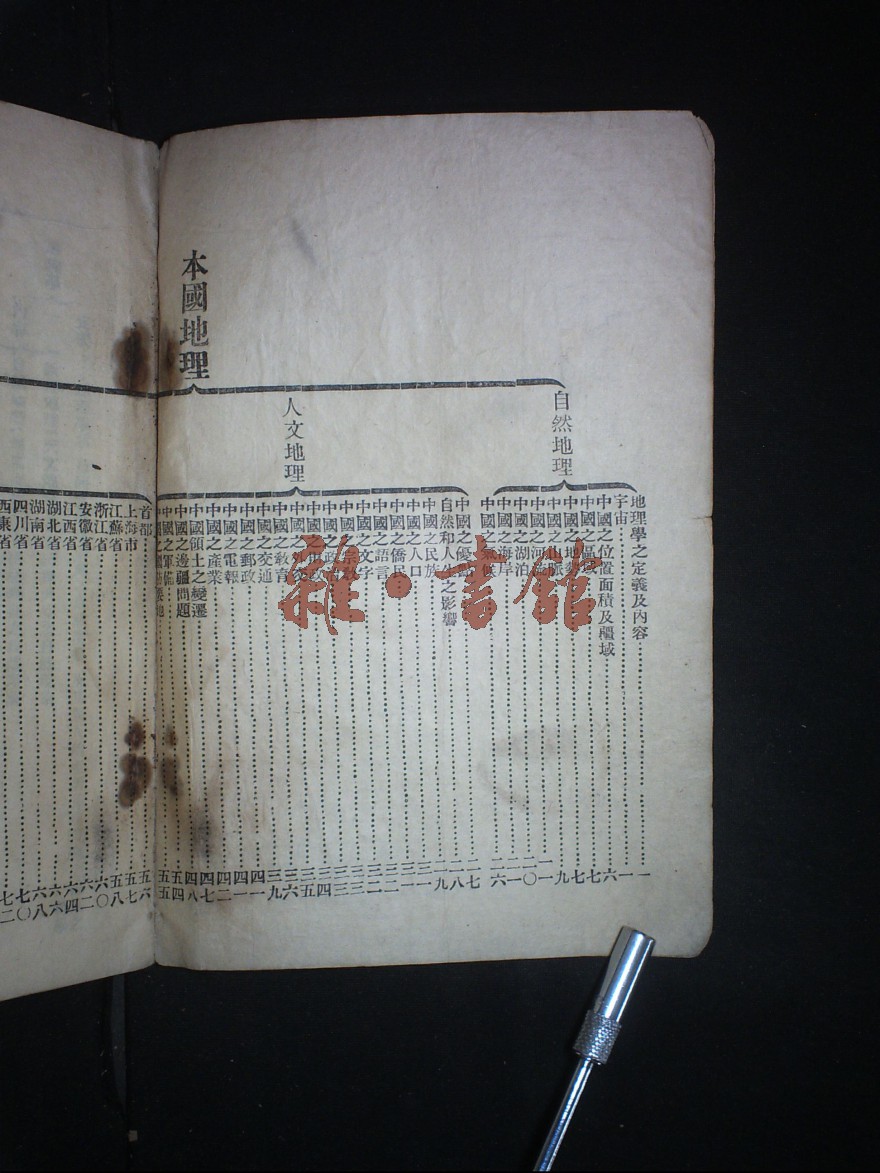 本國地理
自然地理
地理學之定義及內容 一
宇宙 一
中國之位置面積及疆域 六
中國之區域 七
中國之地勢 七
中國之山脈 九
中國之河流 一一
中國之湖泊 二〇
中國之海岸 二一
中國之氣候 二六
人文地理
中國之優 二七
自然和人生之影響 二八
中國之民族 二九
中國之人口 三一
中國之僑民 三一
中國之語言 三二
中國之文字 三二
中國之宗教 三三
中國之政治 三三
中國之財政 三四
中國之外交 三五
中國之教育 三六
中國之交通 三九
中國之郵政 四一
中國之電報 四一
中國之產業 四二
中國領土之變遷 四七
中國之邊疆問題 四八
中國之軍備 五四
中國之要地 五五
首都 五六
上海市 五七
江蘇省 五八
浙江省 六〇
安徽省 六二
江西省 六四
湖北省 六六
湖南省 六八
四川省 七〇
西康省 七二
雜·書館